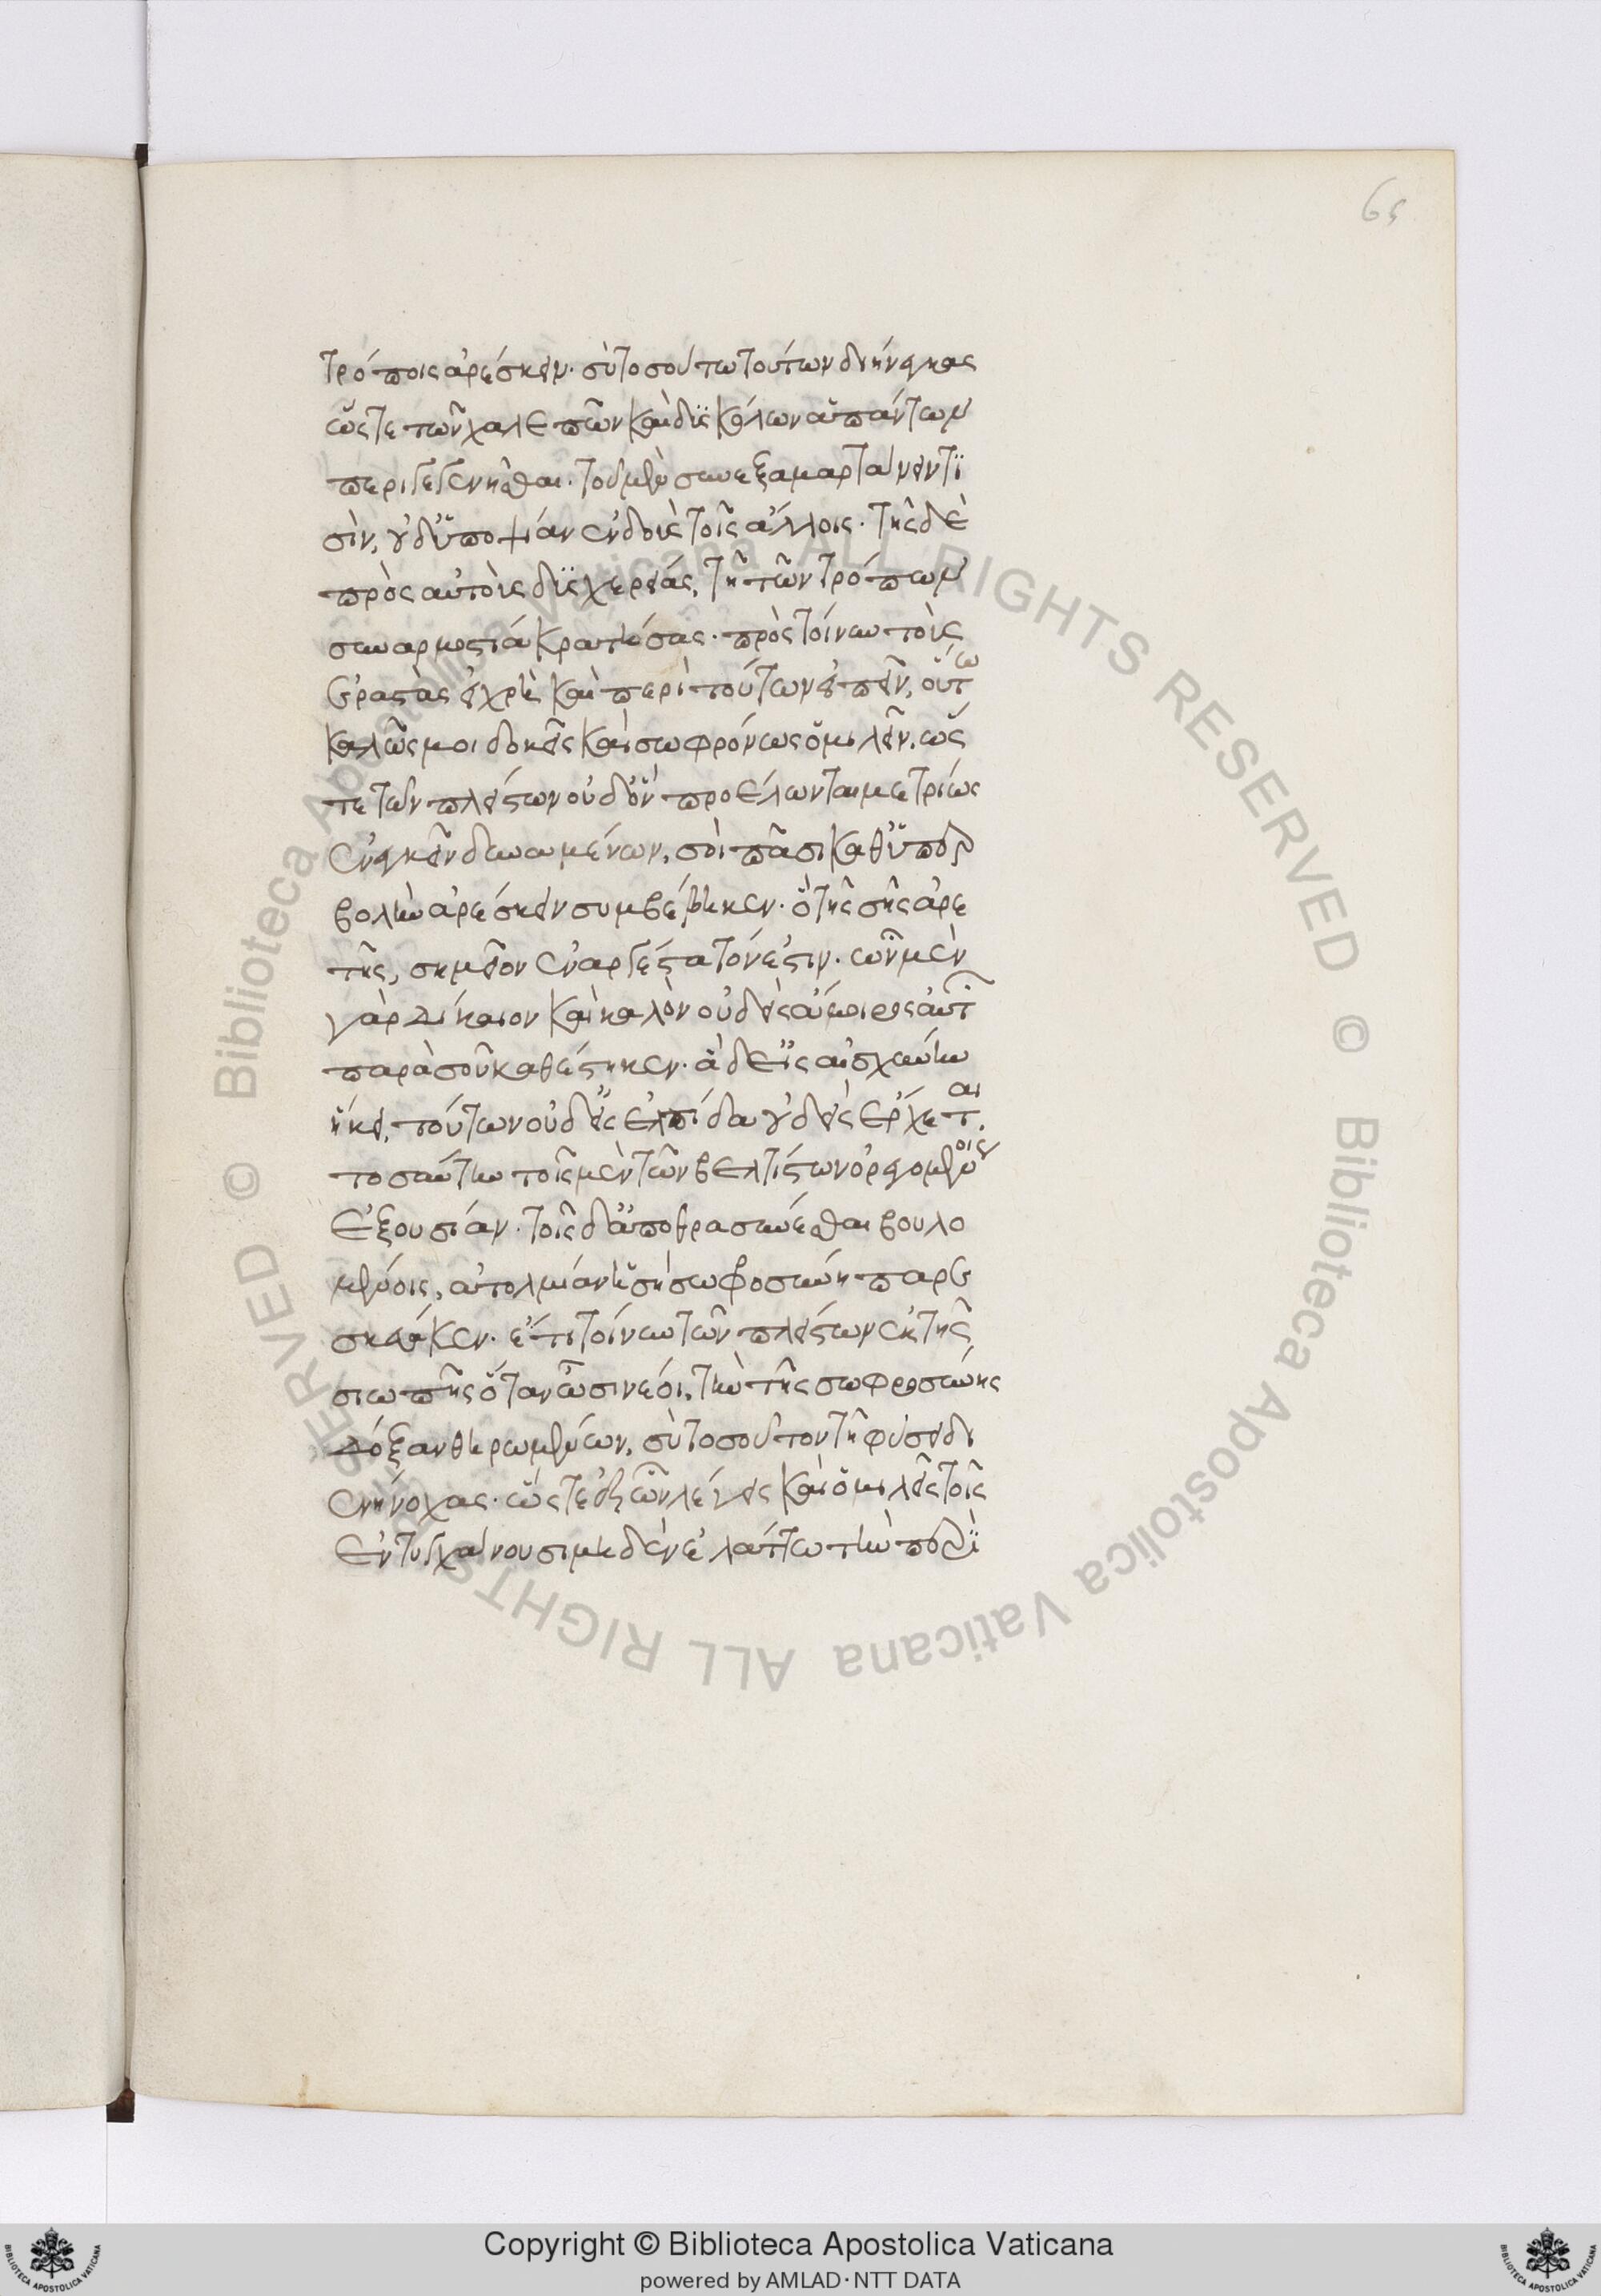 65
τρόποις ἀρέσκειν. σὺ τοσούτω τούτων διήνεγκας
ὥςτε τῶν χαλεπῶν καὶ δυσκόλων ἁπάντων
περιγεγενῆσθαι. τοῦ μὲν συνεξαμαρταίνειν τι
σὶν, οὐδ' ὑποψίαν ἐνδοὺς τοῖς ἄλλοις. τῆς δὲ
πρὸς αὐτοὺς δυσχερείας, τῆ τῶν τρόπων
συναρμοστία κρατήσας. πρὸς τοίνυν τοὺς
ἐραστὰς εἰ χρὴ καὶ περὶ τούτων εἰπεῖν, οὕτω
καλῶς μοι δοκεῖς καὶ σωφρόνως ὁμιλεῖν, ὥς
τε τῶν πλείστων οὐδ' ὃν προέλωνται μετρίως
ἐνεγκεῖν δυναμένων, σοὶ πᾶσι καθ' ὑπερ
βολὴν ἀρέσκειν συμβέβηκεν. ὃ τῆς σῆς ἀρε
τῆς, σημεῖον ἐναργέστατόν ἐστιν. ὧν μὲν
γὰρ δίκαιον καὶ καλὸν οὐδεὶς ἄμοιρος αὐτῶν
παρὰ σοῦ καθέστηκεν. ἃ δ' εἰς αἰσχύνην
ἥκει, τούτων οὐδ' εἰς ἐλπίδα οὐδεὶς ἔρχεται.
τοσαύτην τοῖς μὲν τῶν βελτίστων ὀρεγομένοις
ἐξουσίαν. τοῖς δ' ἀποθρασύνεσθαι βουλο
μένοις, ἀτολμίαν ἡ σὴ σωφροσύνη παρε
σκεύακεν. ἔτι τοίνυν τῶν πλείστων ἐκ τῆς
σιωπῆς ὅταν ὦσι νέοι, τὴν τῆς σωφροσύνης
δόξαν θηρωμένων, σὺ τοσοῦτον τῆ φύσει δι
ενήνοχας. ὥςτε ἐξ ὧν λέγεις καὶ ὁμιλεῖς τοῖς
ἐντυγχάνουσι μηδὲν ἐλάττω τὴν περὶ
Copyright © Biblioteca Apostolica Vaticana
powered by AMLAD·NTT DATA